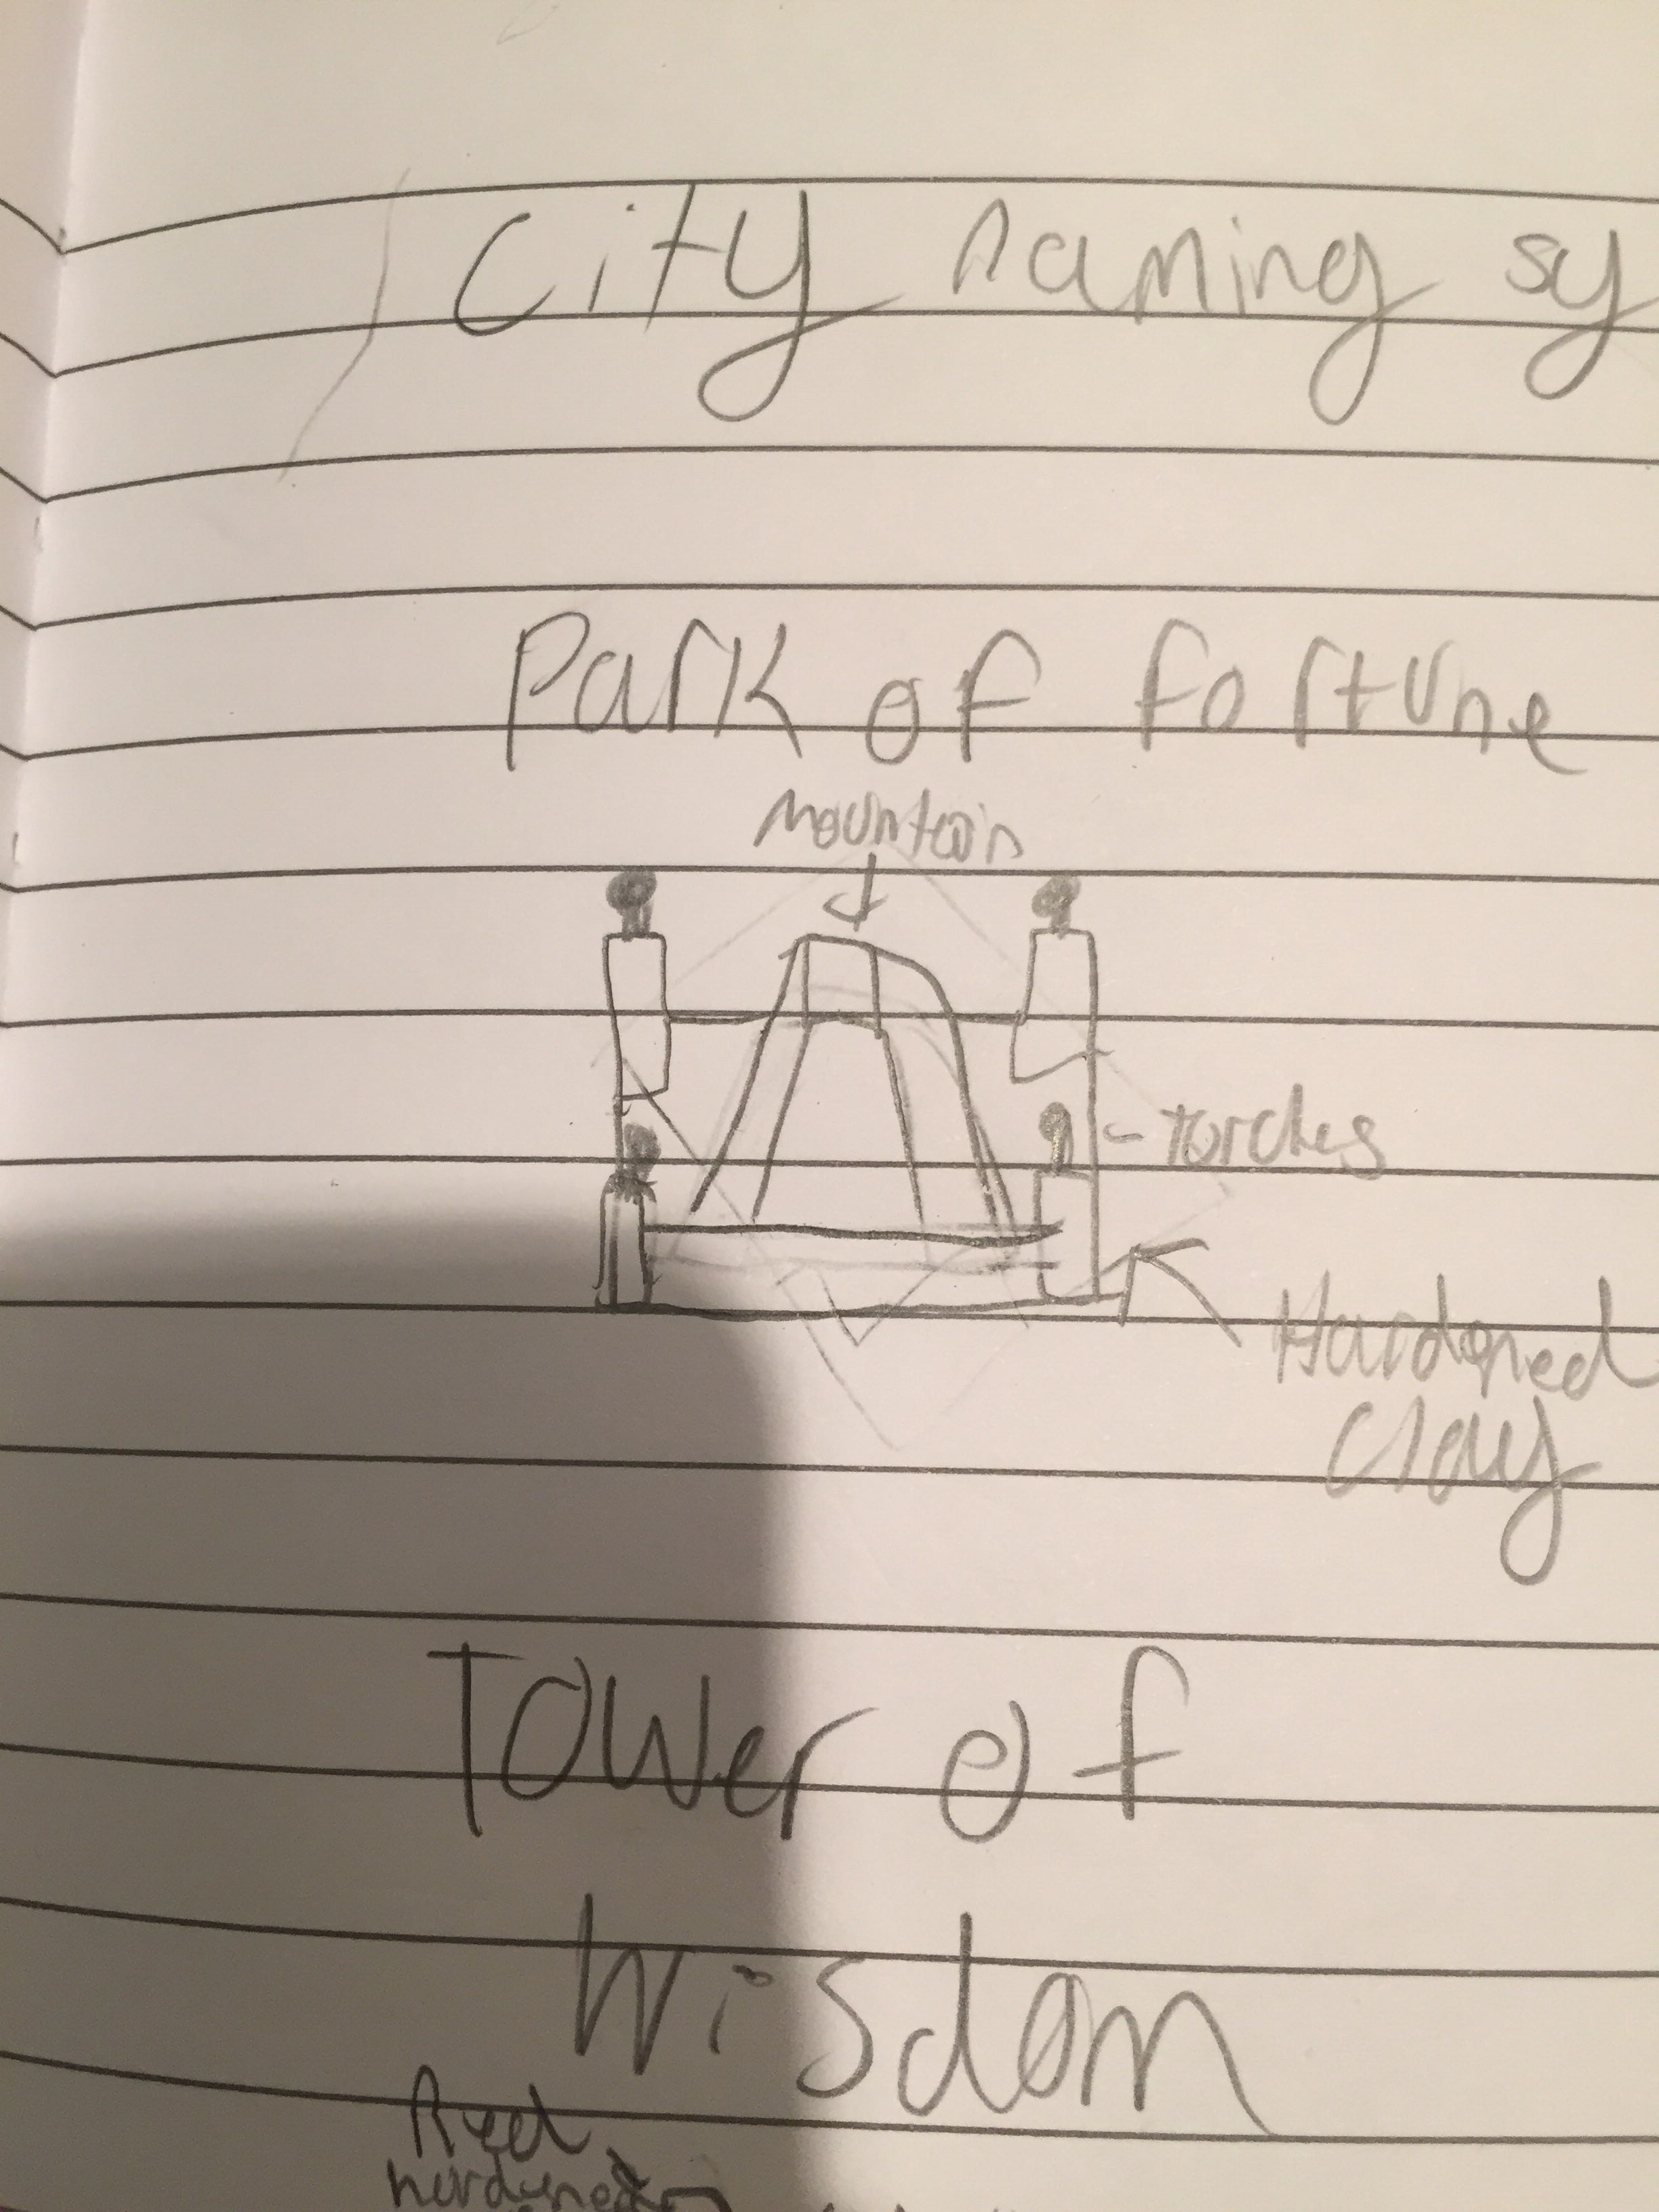 City naming sy
Park of fortune
Mountain
Torches
Hardened
Clay
Tower of
Wisdom
Red
hardened